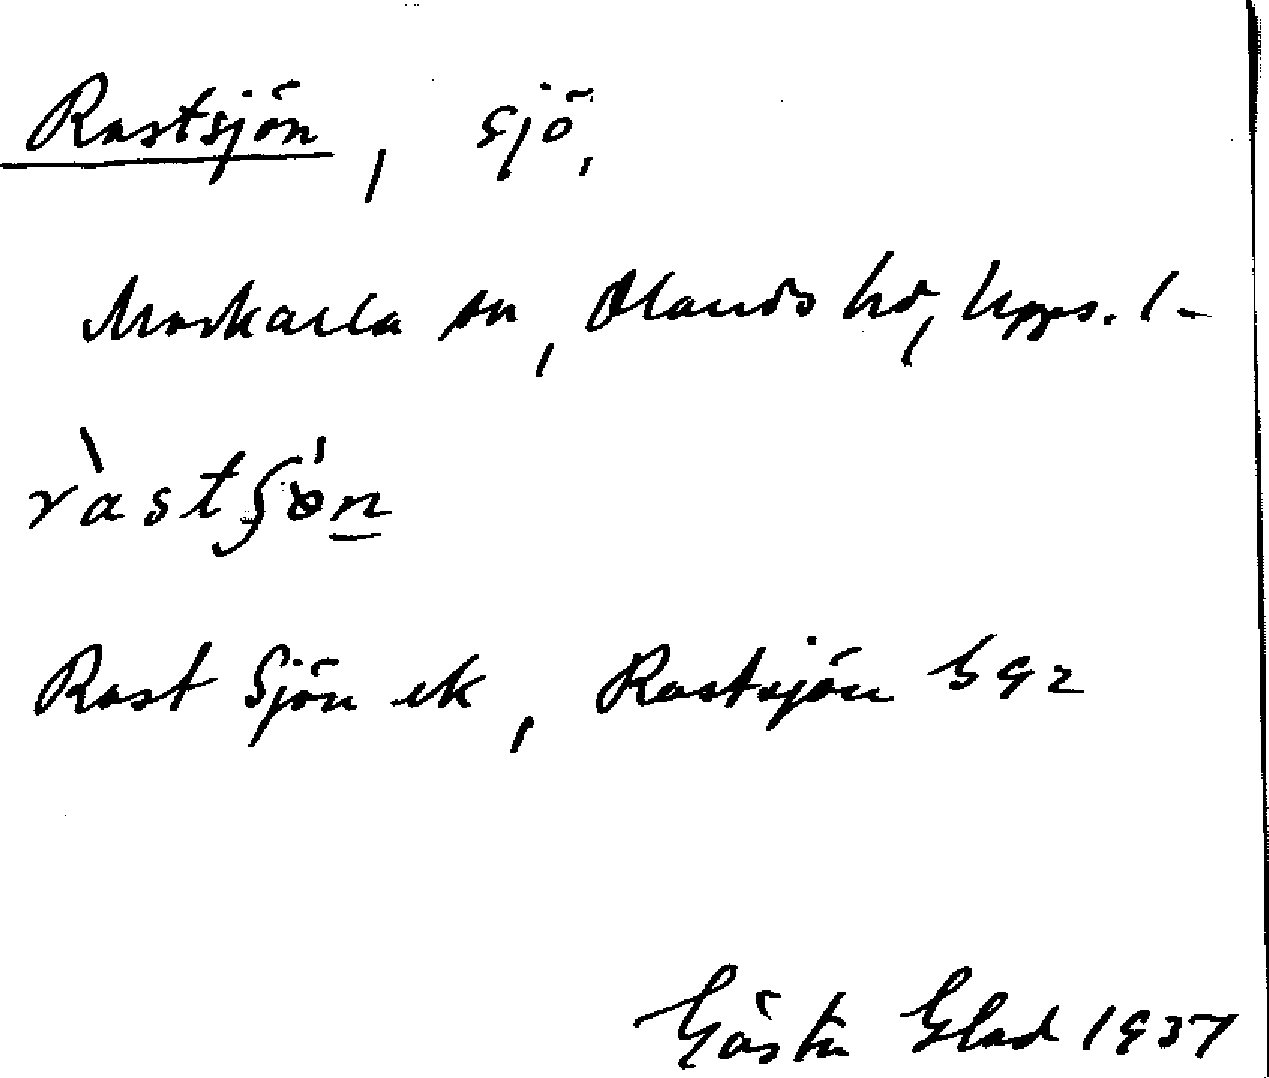 Rastsjön, sjö,
Morkarla sn, Olands hd, Upps. l-
ràstʃö́n
Rast Sjön ek, Rastsjön G 92
Gösta Glad 1937